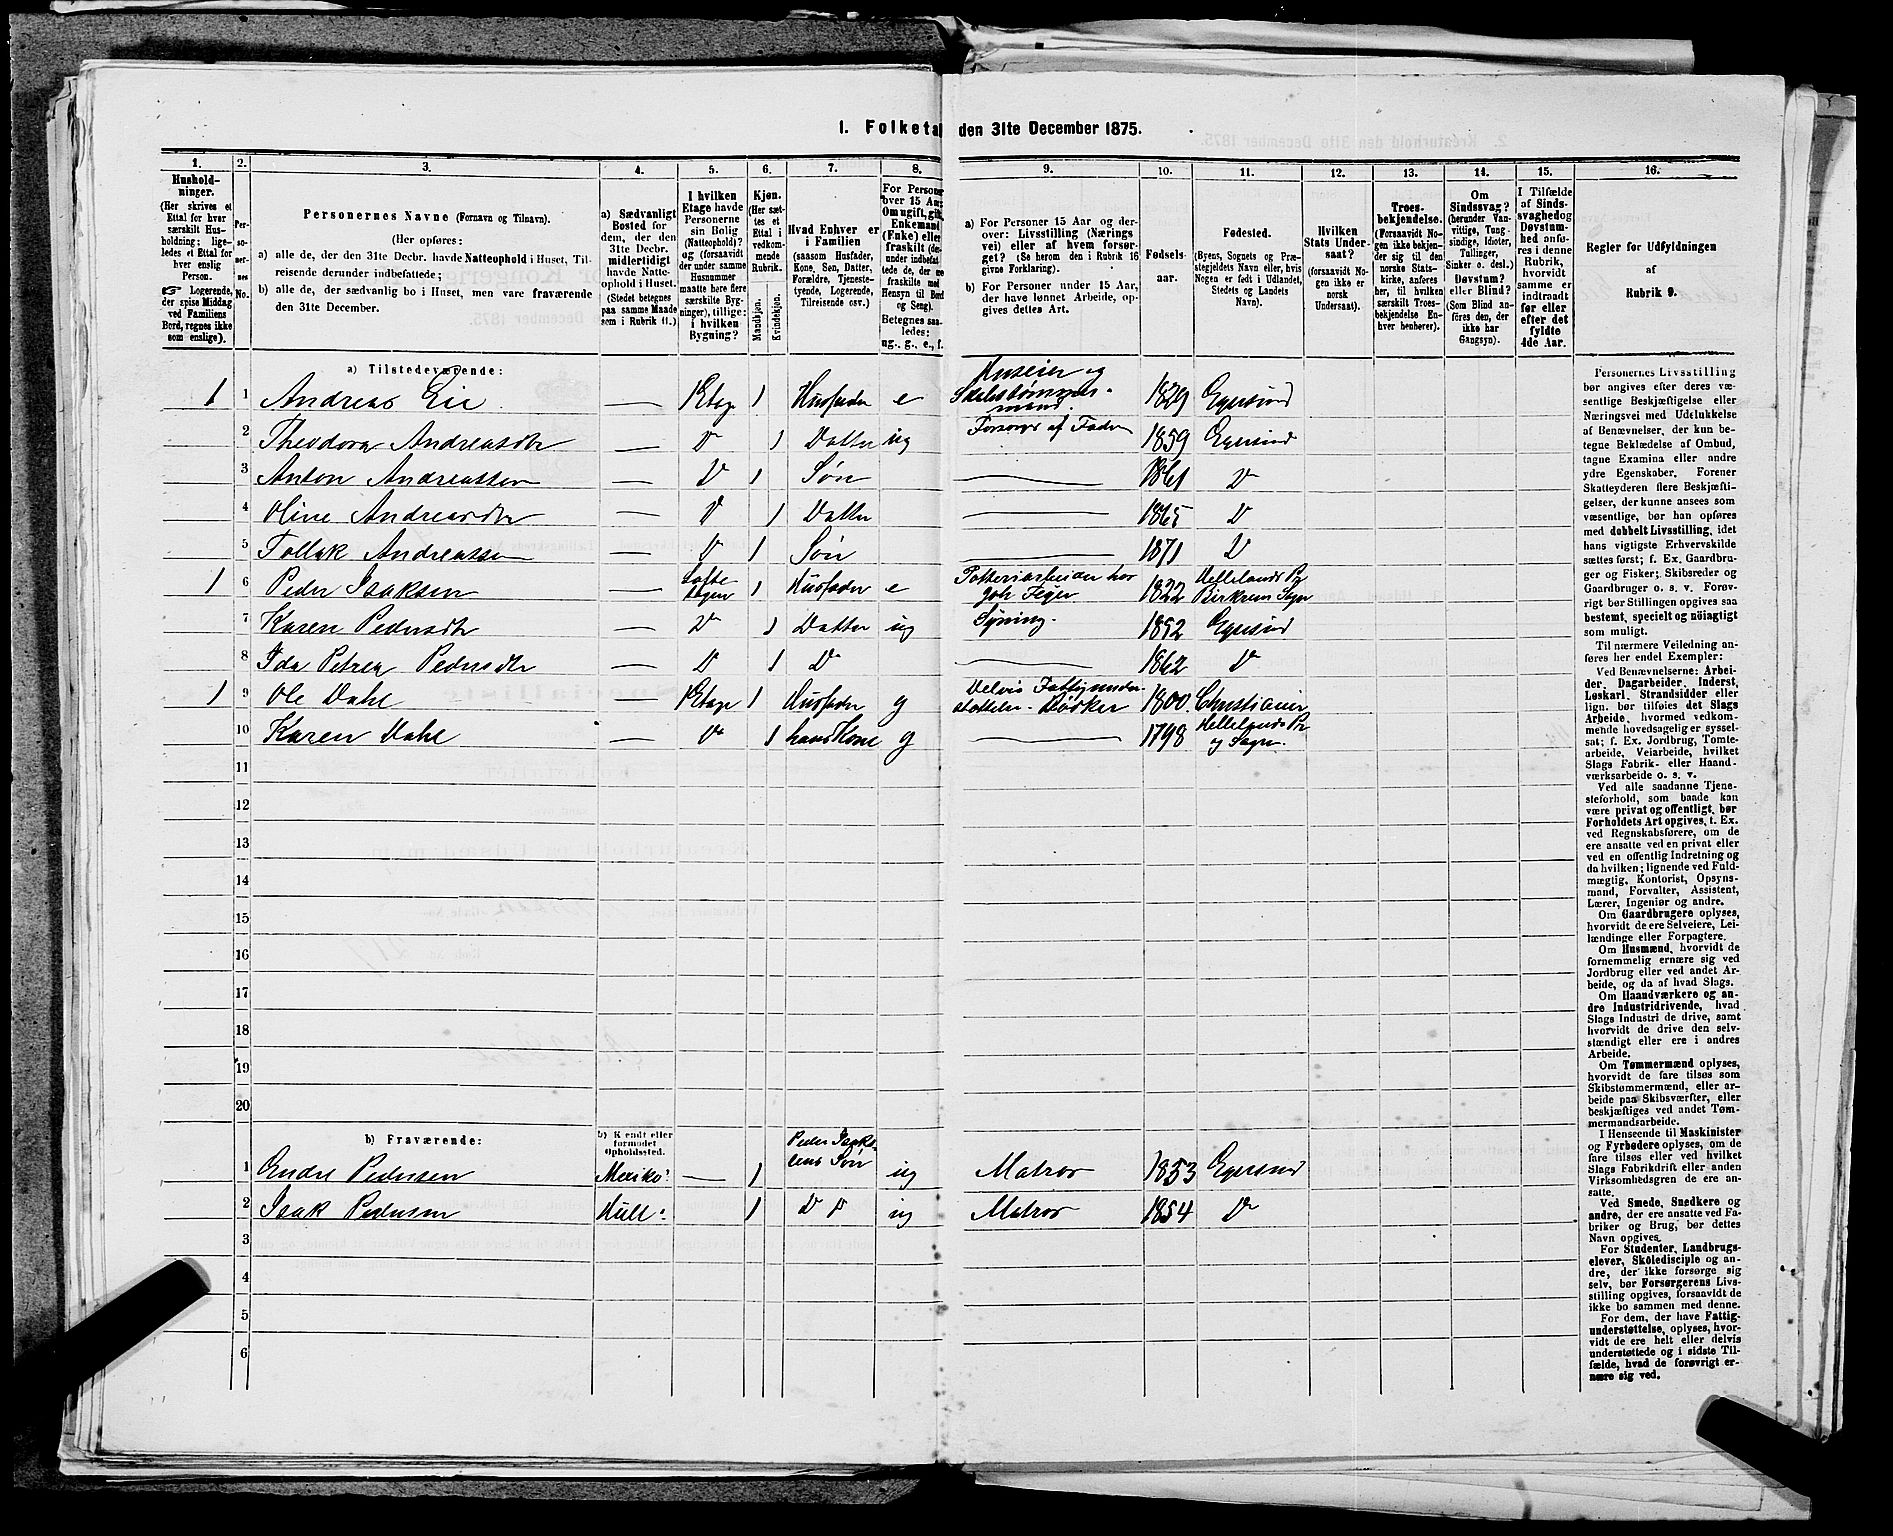 1. Folketa den 31te December 1875.
1. 2. 3. 4. 5. 6. 7. 8. 9. 10. 11. 12. 13. 14. 15. 16.
Hushold-
ninger.
(Her skrives et
Ettal for hver
særskilt Hus-
holdning; lige-
ledes et Ettal for
hver enslig
Person.
☞ Logerende,
der spise Middag
ved Familiens
Bord, regnes ikke
som enslige).
Per-
so-
ner-
nes
No.
Personernes Navne (Fornavn og Tilnavn).
(Her opføres:
a) alle de, der den 31te Decbr. havde Natteophold i Huset, Til-
reisende derunder indbefattede;
b) alle de, der sædvanlig bo i Huset, men vare fraværende
den 31te December.
a) Sædvanligt
Bosted for
dem, der den
31te Decbr.
midlertidigt
havde Natte-
ophold i Huset.
(Stedet betegnes
paa samme Maade
som i Rubrik 11.)
I hvilken
Etage havde
Personerne
sin Bolig
(Natteophold)?
og (forsaavidt
der under samme
Husnummer
maatte høre flere
særskilte Byg-
ninger), tillige:
i hvilken
Bygning?
Kjøn.
(Her sæt-
tes et
Ettal i
vedkom-
mende
Rubrik.
Mandskjøn.
Kvindekjøn.
Hvad Enhver er
i Familien
(saasom Husfader,
Kone, Søn, Datter,
Forældre, Tjeneste-
tyende, Logerende,
Tilreisende osv.)
For Persone
over 15 Aa
Om ugift, gif
Enkemand
(Enke) elle
fraskilt
Betegnes saa-
ledes:
ug., g., e., f.
a) For Personer 15 Aar og der-
over: Livsstilling (Nærings
vei) eller af hvem forsør-
get? (Se herom den i Rubrik 16
givne Forklaring).
b) For Personer under 15 Aar,
der have lønnet Arbeide, op-
gives dettes Art.
Fødsels-
aar.
Fødested.
(Byens, Sognets og Præ-
stegjeldets Navn eller, hvis
Nogen er født i Udlandet,
Stedets og Landets
Navn).
Hvilken
Stats Under-
saat?
(forsaavidt No-
gen ikke er
norsk
Undersaat).
Troes-
bekjendelse.
(Forsaavidt No-
gen ikke bekjen-
der sig til den
norske Stats-
kirke, anføres
her, til hvilken
særskilt Troes-
bekjendelse En-
hver henhører).
Om
Sindssvag?
(herunder Van-
vittige, Tung-
sindige, Idioter,
Tullinger,
Sinker o. desl.)
Døvstum?
eller Blind?
(Som Blind an-
føres den, der
ikke har
Gangsyn).
I Tilfælde
af Sinds-
svaghed og
Døvstum-
hed anfø-
res i denne
Rubrik,
hvorvidt
samme er
indtraadt
før eller
efter det
fyldte
4de Aar.
Regler for Udfyldningen
af
Rubrik 9.
a) Tilstedeværende:
1 1 Andreas Eie — 1 Etage 1 Husfader e Huseier og Skibstømmermand. 1829 Egersund
2 Theodora Andreasdtr — D 1 Datter ug Forsørges af Fader 1859 Egersund
3 Anton Andreassen — D 1 Søn — 1861 D
4 Oline Andreasdtr — D 1 Datter — 1865 D
5 Tollak Andreassen — D 1 Søn — 1871 D
1 6 Peder Isaksen — Lofts etagen 1 Husfader e Potteriarbeider hos Joh Feyer 1822 Hellelands Pg Birkrem Sogn
7 Karen Pedersdtr — D 1 Datter ug Syning. 1852 Egersund
8 Ida Petrea Pedersdtr — D 1 D — 1862 D
1 9 Ole Dahl — 1 Etage 1 Husfader g Delvis Fattigunder støttelse - Bødker 1800. Christiania
10 Karen Dahl — D 1 hans Kone g — 1798 Hellelands Pr og Sogn.
11
12
13
14
15
16
17
18
19
20
b) Fraværende:
b) Kjendt eller
formodet
Opholdssted.
1 Endre Pedersen Mexiko? — 1 Peder Isaksens Søn ug Matros 1853 Egersund
2 Isak Pedersen Hull? 1 D D ug Matros 1854 D
3
4
5
6
Personernes Livsstilling
bør angives efter deres væ-
sentlige Beskjæftigelse eller
Næringsvei med Udelukkelse
af Benævnelser, der kun be-
tegne Beklædelse af Ombud,
tagne Examina eller andre
ydre Egenskaber. Forener
Skatteyderen flere Beskjæfti-
gelser, der kunne ansees som
væsentlige, bør han opføres
med dobbelt Livsstilling, idet
hans vigtigste Erhvervskilde
sættes først; f. Ex. Gaardbru-
ger og Fisker; Skibsreder og
Gaardbruger o. s. v. Forøv-
rigt bør Stillingen opgives saa
bestemt, specielt og nöiagtigt
som muligt.
Til nærmere Veiledning an-
føres her endel Exempler:
Ved Benævnelserne: Arbei-
der, Dagarbeider, Inderst,
Løskarl, Strandsidder eller
lign. bør tilføies det Slags
Arbeide, hvormed vedkom-
mende hovedsagelig er syssel-
sat; f. Ex. Jordbrug, Tomte-
arbeide, Veiarbeide, hvilket
Slags Fabrik- eller Haand-
værksarbeide o. s. v.
Ved alle saadanne Tjene-
steforhold, som baade kan
være privat og offentligt, bør
Forholdets Art opgives, t. Ex.
ved Regnskabsførere, om de
ere ansatte ved en privat eller
ved en offentlig Indretning og
da hvilken; lignende ved Fuld-
mægtig, Kontorist, Opsyns-
mand, Forvalter, Assistent,
Lærer, Ingeniør og andre.
Om Gaardbrugere oplyses,
hvorvidt de ere Selveiere, Lei-
lændinge eller Forpagtere.
Om Husmænd, hvorvidt de
fornemmelig ernære sig ved
Jordbrug eller ved andet Ar-
beide, og da af hvad Slags.
Om Haandværkere og an-
dre Industridrivende, hvad
Slags Industri de drive, samt
hvorvidt de drive den selv-
stændigt eller ere i andres
Arbeide.
Om Tømmermænd oplyses,
hvorvidt de fare tilsøs som
Skibstømmermænd, eller ar-
beide paa Skibsværfter, eller
beskjæftiges ved andet Tøm-
mermandsarbeide.
I Henseende til Maskinister
og Fyrbødere oplyses, om de
fare tilsøs eller ved hvilket
Slags Fabrikdrift eller anden
Virksomhedsgren de ere an-
satte.
Ved Smede, Snedkere og
andre, der ere ansatte ved Fa-
briker og Brug, bør dettes
Navn opgives.
For Studenter, Landbrugs-
elever, Skoledisciple og an-
dre, der ikke forsørge sig
selv, bør Forsørgerens Livs-
stilling opgives, forsaavidt de
ikke bo sammen med denne.
For dem, der have Fattig-
understøttelse, oplyses, hvor-
vidt de ere helt eller delvis
understøttede og i sidste Til-
fælde, hvad de forøvrigt er-
nære sig ved.